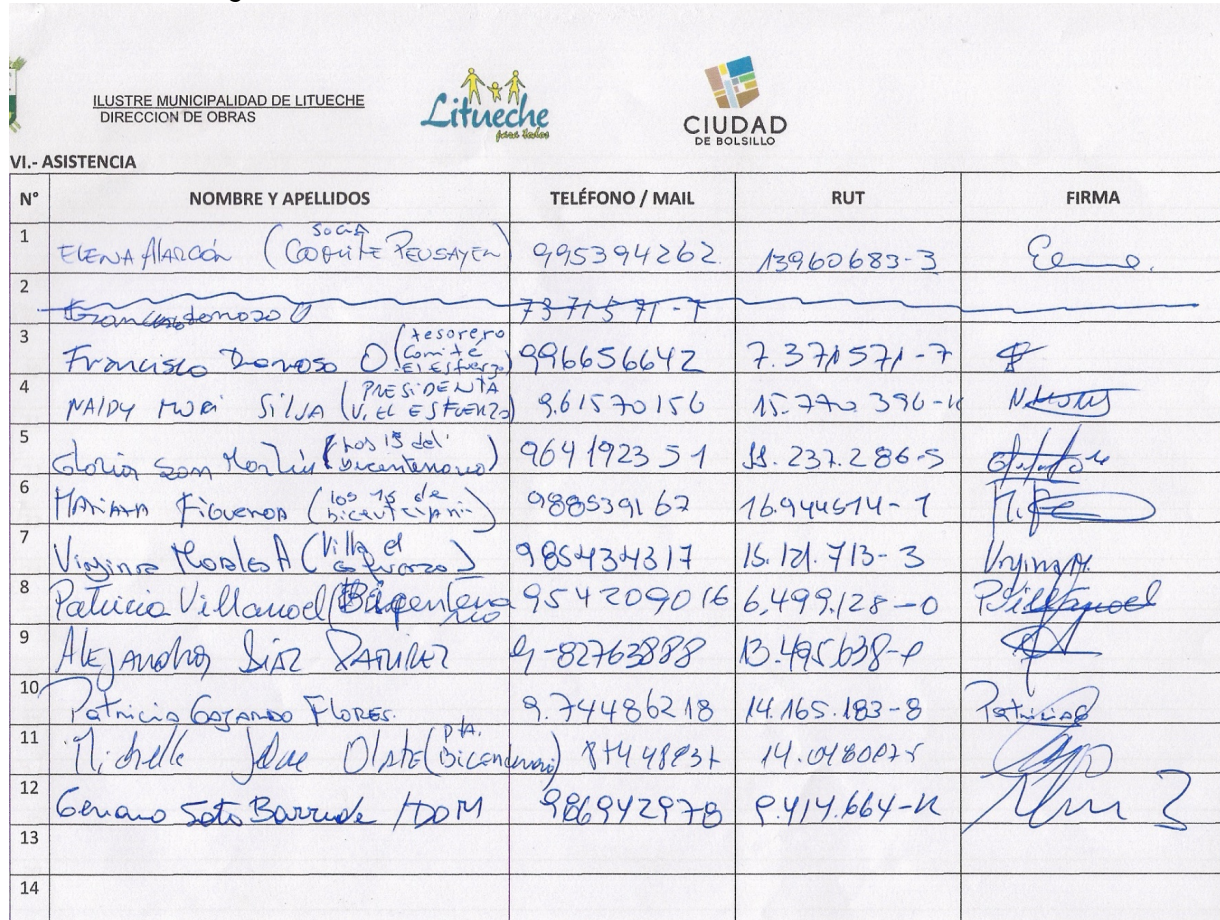 ILUSTRE MUNICIPALIDAD DE LITUECHE
DIRECCION DE OBRAS
Litueche
para todos
CIUDAD
DE BOLSILLO
VI.- ASISTENCIA
N° NOMBRE Y APELLIDOS TELÉFONO / MAIL RUT FIRMA
1 ELENA ALARCÓN (SOCIA COMITE PEUSAYEN) 995394262 13960683-3
2 Francisco Donoso O 7371571-7
3 Francisco Donoso O (tesorero Comité El Esfuerzo) 996656642 7.371571-7
4 NAIDY MORI SILVA (PRESIDENTA V. EL ESFUERZO) 9,61570156 15.770.396-K
5 Gloria San Martin (Los 15 del bicentenario) 964192351 11.237.286-5
6 MARIANA FIGUEROA (los 15 de) 988539167 16.944514-1
7 Virginia Morales A (Villa el esfuerzo) 985434317 15.121.713-3
8 Patricia Villanoel (Bicentenario 954209016 6,499.128-0 PVillanoel
9 ALEJANDRA DIAZ RAMIREZ 9-82763888 13.495.638-
10 Patricia GAJARDO FLORES. 9.74486218 14.165.183-8 Patricia G
11 Michelle OLATE (pta. Bicentenario)
12 Genaro Soto Barrude / DOM 986942978 9.414.664-K
13
14